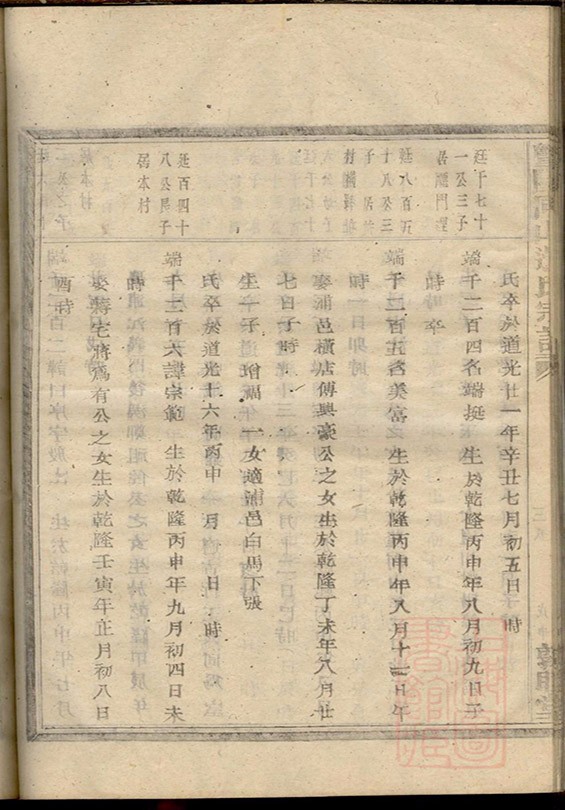 氏卒於道光廿一年辛丑七月初五日 時
廷千七十一公三子居
端千二百四名端挺 生於乾隆丙申年八月初九日子
時 卒
廷八百五十八公三子居
端千二百五名美富 生於乾隆丙申年八月十二日午
時
娶浦邑橫店傅興豪公之女生於乾隆丁未年八月廿
七日子時
生一子 增福 一女適浦邑白馬下張
氏卒於道光十六年丙申 月 日 時
廷百四十八公長子居本村
端千二百六諱宗範 生於乾隆丙申年九月初四日未
時
娶蔣宅蔣為有公之女生於乾隆壬寅年正月初八日
酉時